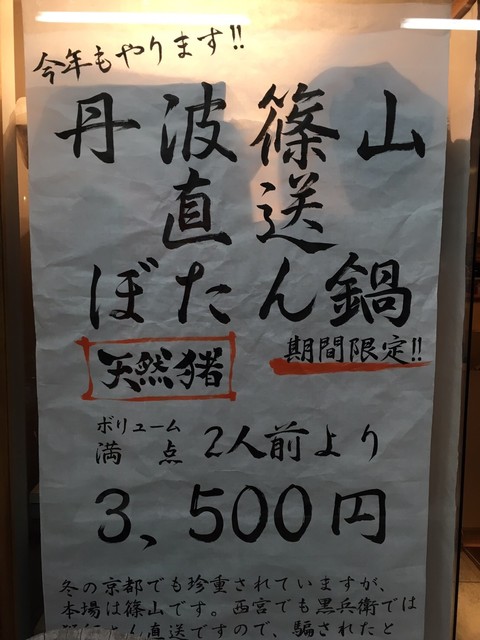 今年もやります!!
丹波篠山
直送
ぼたん鍋
天然猪
期間限定!!
ボリューム
満点 2人前より
3,500円
冬の京都でも珍重されていますが、
本場は篠山です。西宮でも黒兵衛では
直送ですので、騙されたと